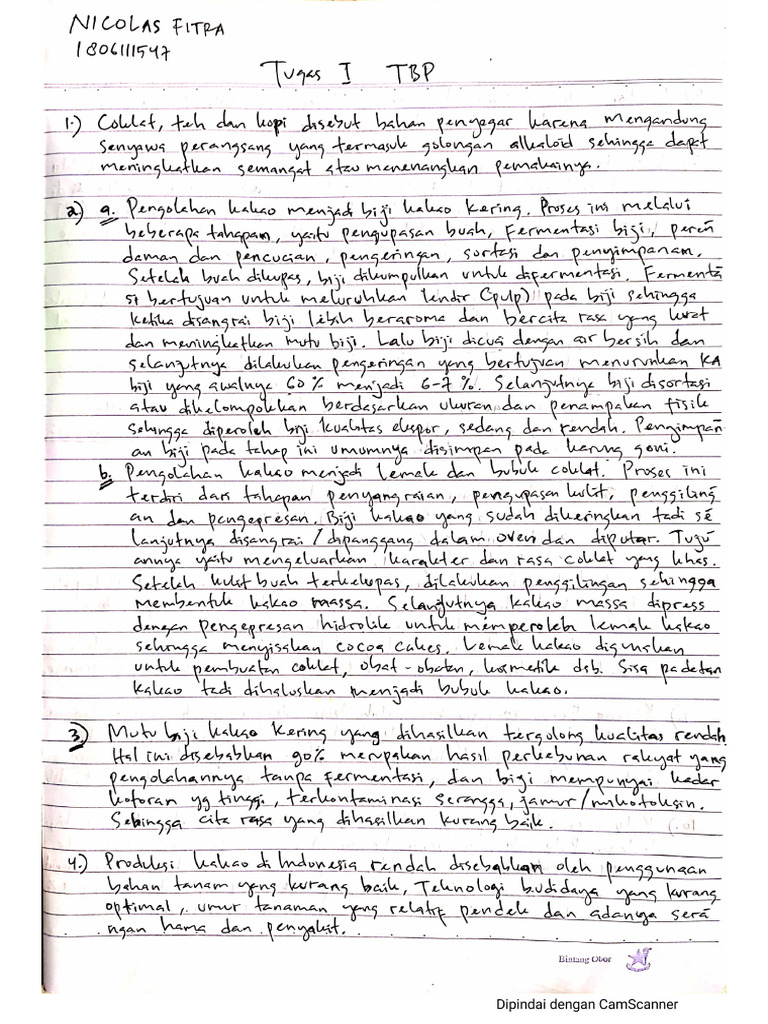 NICOLAS FITRA
1806111547
Tugas I TBP
1.) Coklat, teh dan kopi disebut bahan penyegar karena mengandung
senyawa perangsang yang termasuk golongan alkaloid sehingga dapat
meningkatkan semangat atau menenangkan pemakainya.
2) a. Pengolahan kakao menjadi biji kakao kering. Proses ini melalui
beberapa tahapan, yaitu pengupasan buah, Fermentasi biji, peren
daman dan pencucian, pengeringan, sortasi dan penyimpanam.
Setelah buah dikupas, biji dikumpulkan untuk difermentasi. Fermenta
si bertujuan untuk meluruhkan lendir (pulp) pada biji sehingga
ketika disangrai biji lebih beraroma dan bercita rasa yang kuat
dan meningkatkan mutu biji. Lalu biji dicuci dengan air bersih dan
selanjutnya dilakukan pengeringan yang bertujuan menurunkan KA
biji yang awalnya 60% menjadi 6-7%. Selanjutnya biji disortasi
atau dikelompokkan berdasarkan ukuran dan penampakan fisik
sehingga diperoleh biji kualitas ekspor, sedang dan rendah. Penyimpan
an biji pada tahap ini umumnya disimpan pada karung goni.
b. Pengolahan kakao menjadi lemak dan bubuk coklat. Proses ini
terdiri dari tahapan penyangraian, pengupasan kulit, penggiling
an dan pengepresan. Biji kakao yang sudah dikeringkan tadi se
lanjutnya disangrai / dipanggang dalam oven dan diputar. Tuju
annya yaitu mengeluarkan karakter dan rasa coklat yang khas.
Setelah kulit buah terkelupas, dilakukan penggilingan sehingga
membentuk kakao massa. Selanjutnya kakao massa dipress
dengan pengepresan hidrolik untuk memperoleh lemak kakao
sehingga menyisakan cocoa cakes. Lemak kakao digunakan
untuk pembuatan coklat, obat-obatan, kosmetik dsb. Sisa padatan
kakao tadi dihaluskan menjadi bubuk kakao.
3.) Mutu biji kakao kering yang dihasilkan tergolong kualitas rendah.
Hal ini disebabkan 90% merupakan hasil perkebunan rakyat yang
pengolahannya tanpa fermentasi, dan biji mempunyai kadar
kotoran yg tinggi, terkontaminasi serangga, jamur/mikotoksin.
Sehingga cita rasa yang dihasilkan kurang baik.
4.) Produksi kakao di Indonesia rendah disebabkan oleh penggunaan
bahan tanam yang kurang baik, Teknologi budidaya yang kurang
optimal, umur tanaman yang relatif pendek dan adanya sera
ngan hama dan penyakit.
Bintang Obor
Dipindai dengan CamScanner